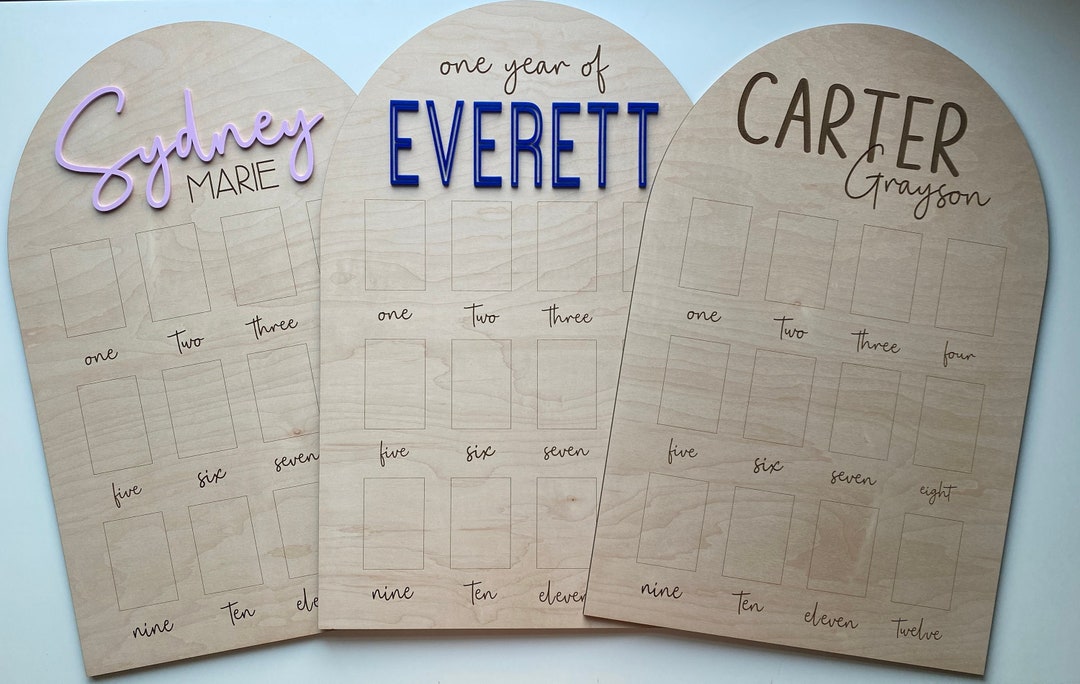 Sydney
MARIE
one Two Three
five six seven
nine Ten ele
one year of
EVERETT
one Two Three
five six seven
nine Ten eleven
CARTER
Grayson
one Two Three four
five six seven eight
nine Ten eleven Twelve